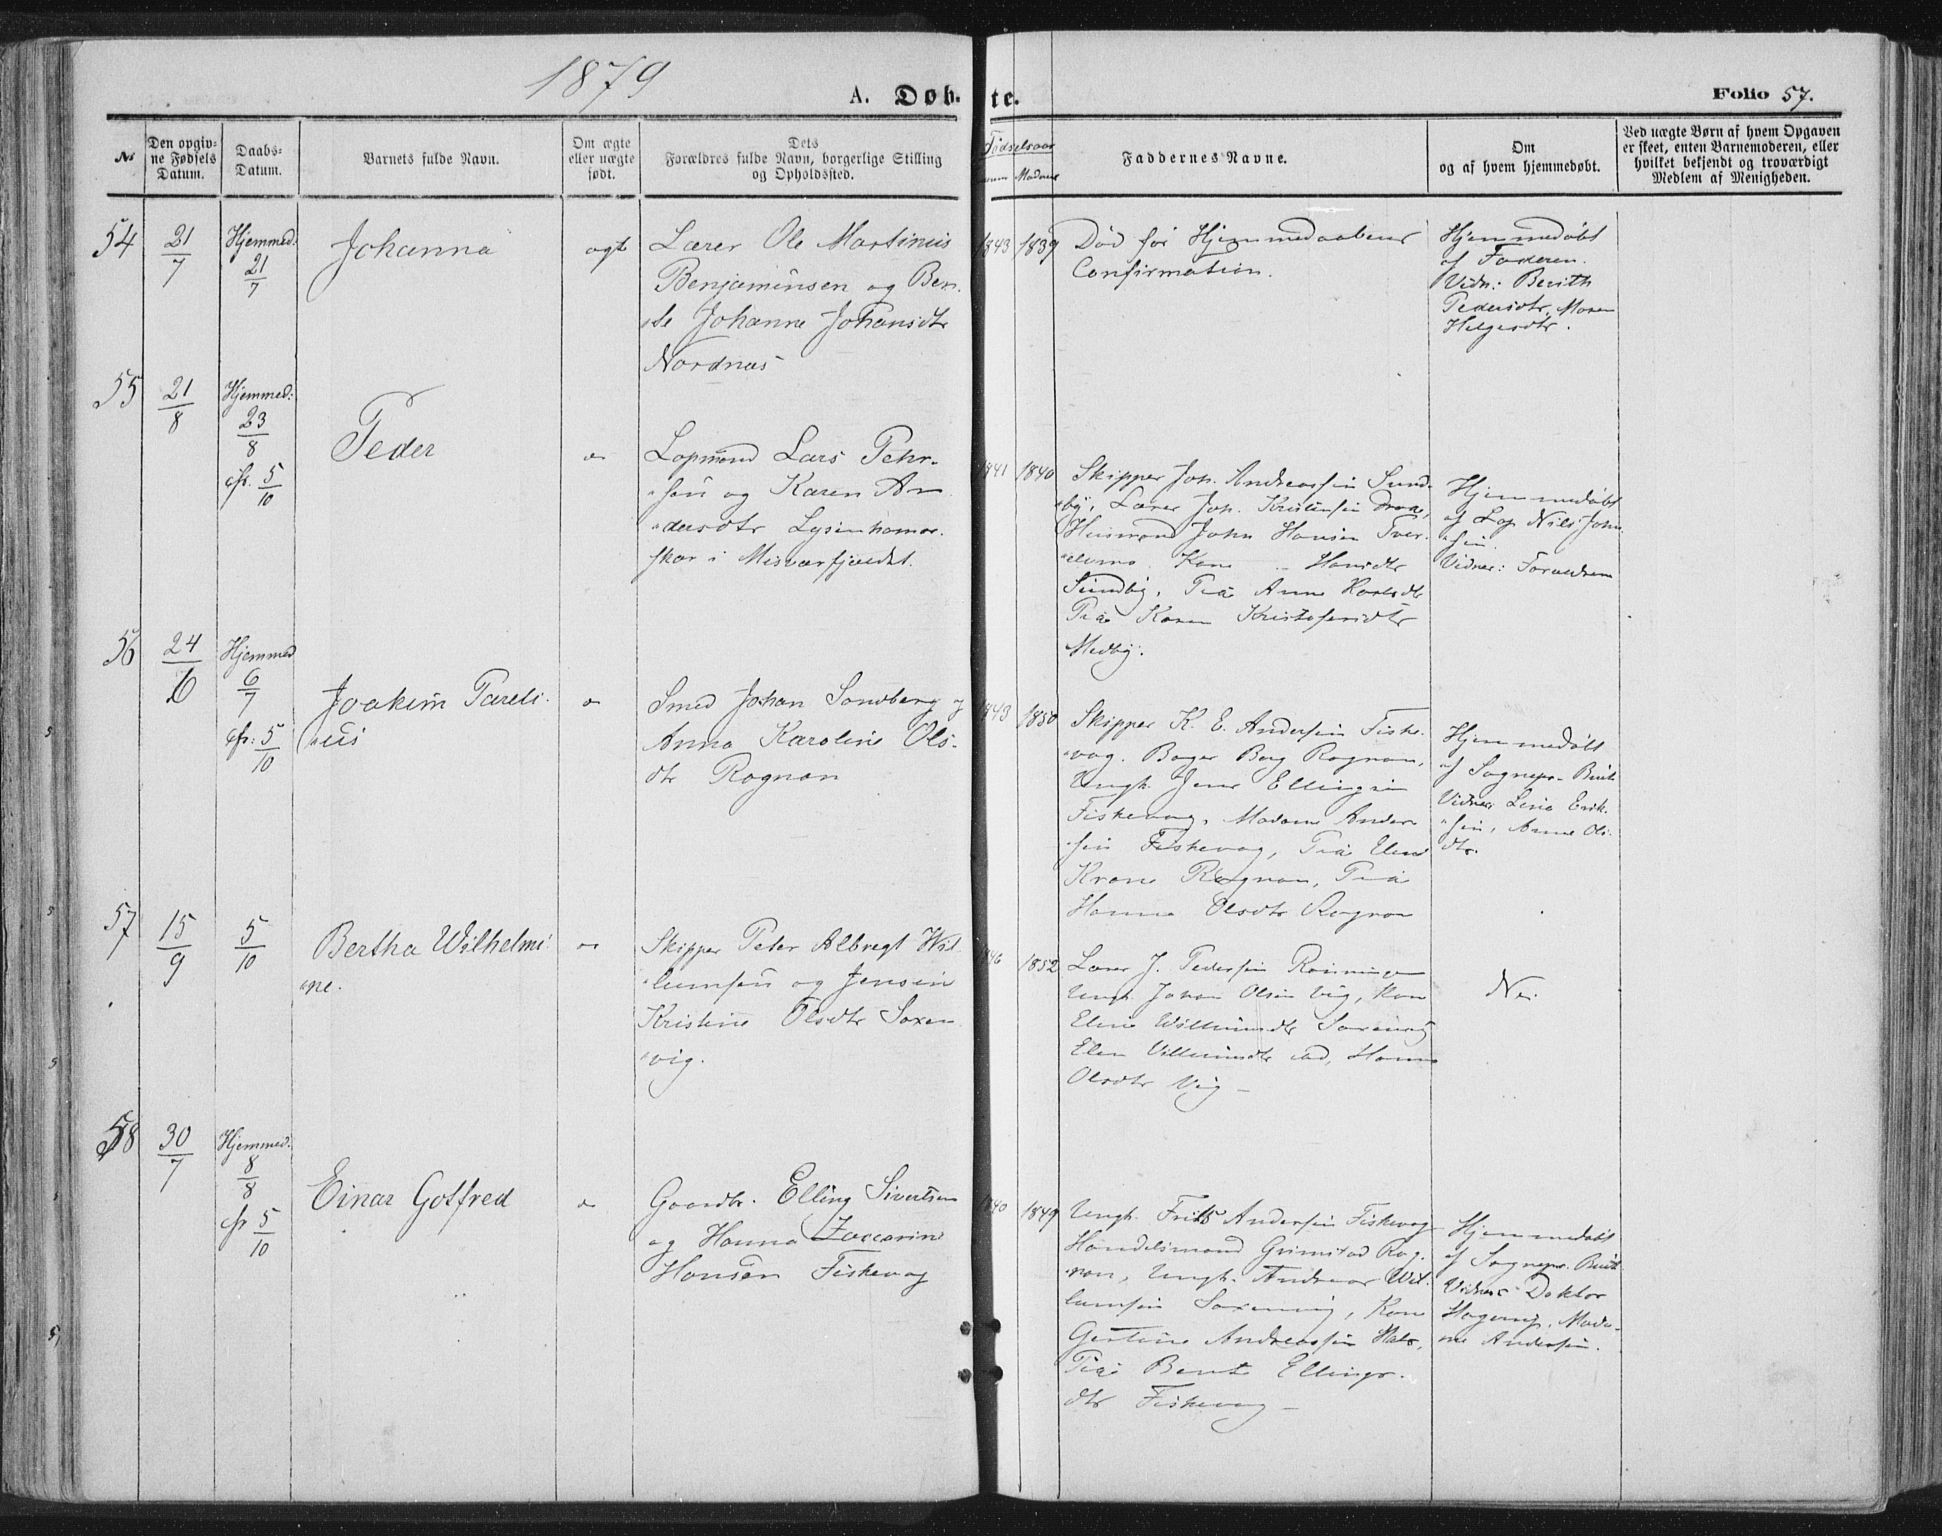 1879
A. Døbte.
Folio 57.
№
Den opgivne Fødsels Datum.
Daabs-Datum.
Barnets fulde Navn.
Om ægte eller uægte født.
Dets Forældres fulde Navn, borgerlige Stilling og Opholdssted.
Fødselsaar
Moders
Faddernes Navne.
Om og af hvem hjemmedøbt.
Ved uægte Børn af hvem Opgaven er skeet, enten Barnemoderen, eller hvilket bekjendt og troværdigt Medlem af Menigheden.
54
21/7
Hjemmed: 21/7
Johanna
ægte
Lærer Ole Martinus
Benjaminsen og Ber-
Johanne Johansdtr
Nordnæs
1843
1839
Død før Hjemmedaabens
Confirmation.
Hjemmedøbt
af Faderen.
Vidn: Berith
Pedersdtr, Maren
Helgesdtr.
55
21/8
Hjemmed: 23/8
cfr. 5/10
Peder
"
Lapmand Lars Pehr-
"sen og Karen An-
"dersdtr Lysenhamar-
skar i Misværfjeldet.
1841
1840
Skipper Joh. Andreassen Sund-
"by, Lærer Joh. Kristensen
Husmand John Hansen Tver-
Kone Hansdtr
Sundby, Pia Anne Karlsdtr
Pia Karen Kristofersdtr
Medby.
Hjemmedøbt
af Lap Nils John-
"sen.
Vidner: Forældrene
56
24/6
Hjemmed 6/7
cfr: 5/10
Joakim Pareli-
"us
"
Smed Johan Sandberg og
Anna Karoline Ols-
dtr Rognan
1843
1850
Skipper K. E. Andersen Fiske-
"vag. Bager Berg Rognan,
Ungk. Jens Ellingsen
Fiskevag, Madame Ander-
"sen Fiskevag, Pia Elen
Krane Rognan, Pia
Hanna Olsdtr Rognan
Hjemmedøbt
af Sognepr.
Vidner Lina Erik-
"sen, Anne Ols-
dtr.
57
15/9
5/10
Bertha Wilhelmi-
"ne.
"
Skipper Peter Albregt Wil-
"lumsen og Jensine
Kristine Olsdtr Saxen-
"vig.
1846
1852
Lærer J. Pedersen
Ungk. Johan Olsen Vig, Kone
Elene Willumsdtr Saxenvig
Elen Villumsdtr ibd, Hanna
Olsdtr Vig –
Nei
58
30/7
Hjemmed: 8/8
cfr 5/10
Einar Gotfred
"
Gaardbr. Elling Sivertsen
og Hanna Zaccarine
Hansen Fiskevag
1840
1849
Ungk. Frits Andersen Fiskevag
Handelsmand Grimstad Rog-
"nan, Ungk. Andreas Wil-
lumsen Saxenvig, Kone
Gertine Andreassen
Pia Berit Ellings-
dtr Fiskevag –
Hjemmedøbt
af Sognepr.
Vidner Doktor
Hagerup, Mada-
me Andersen.